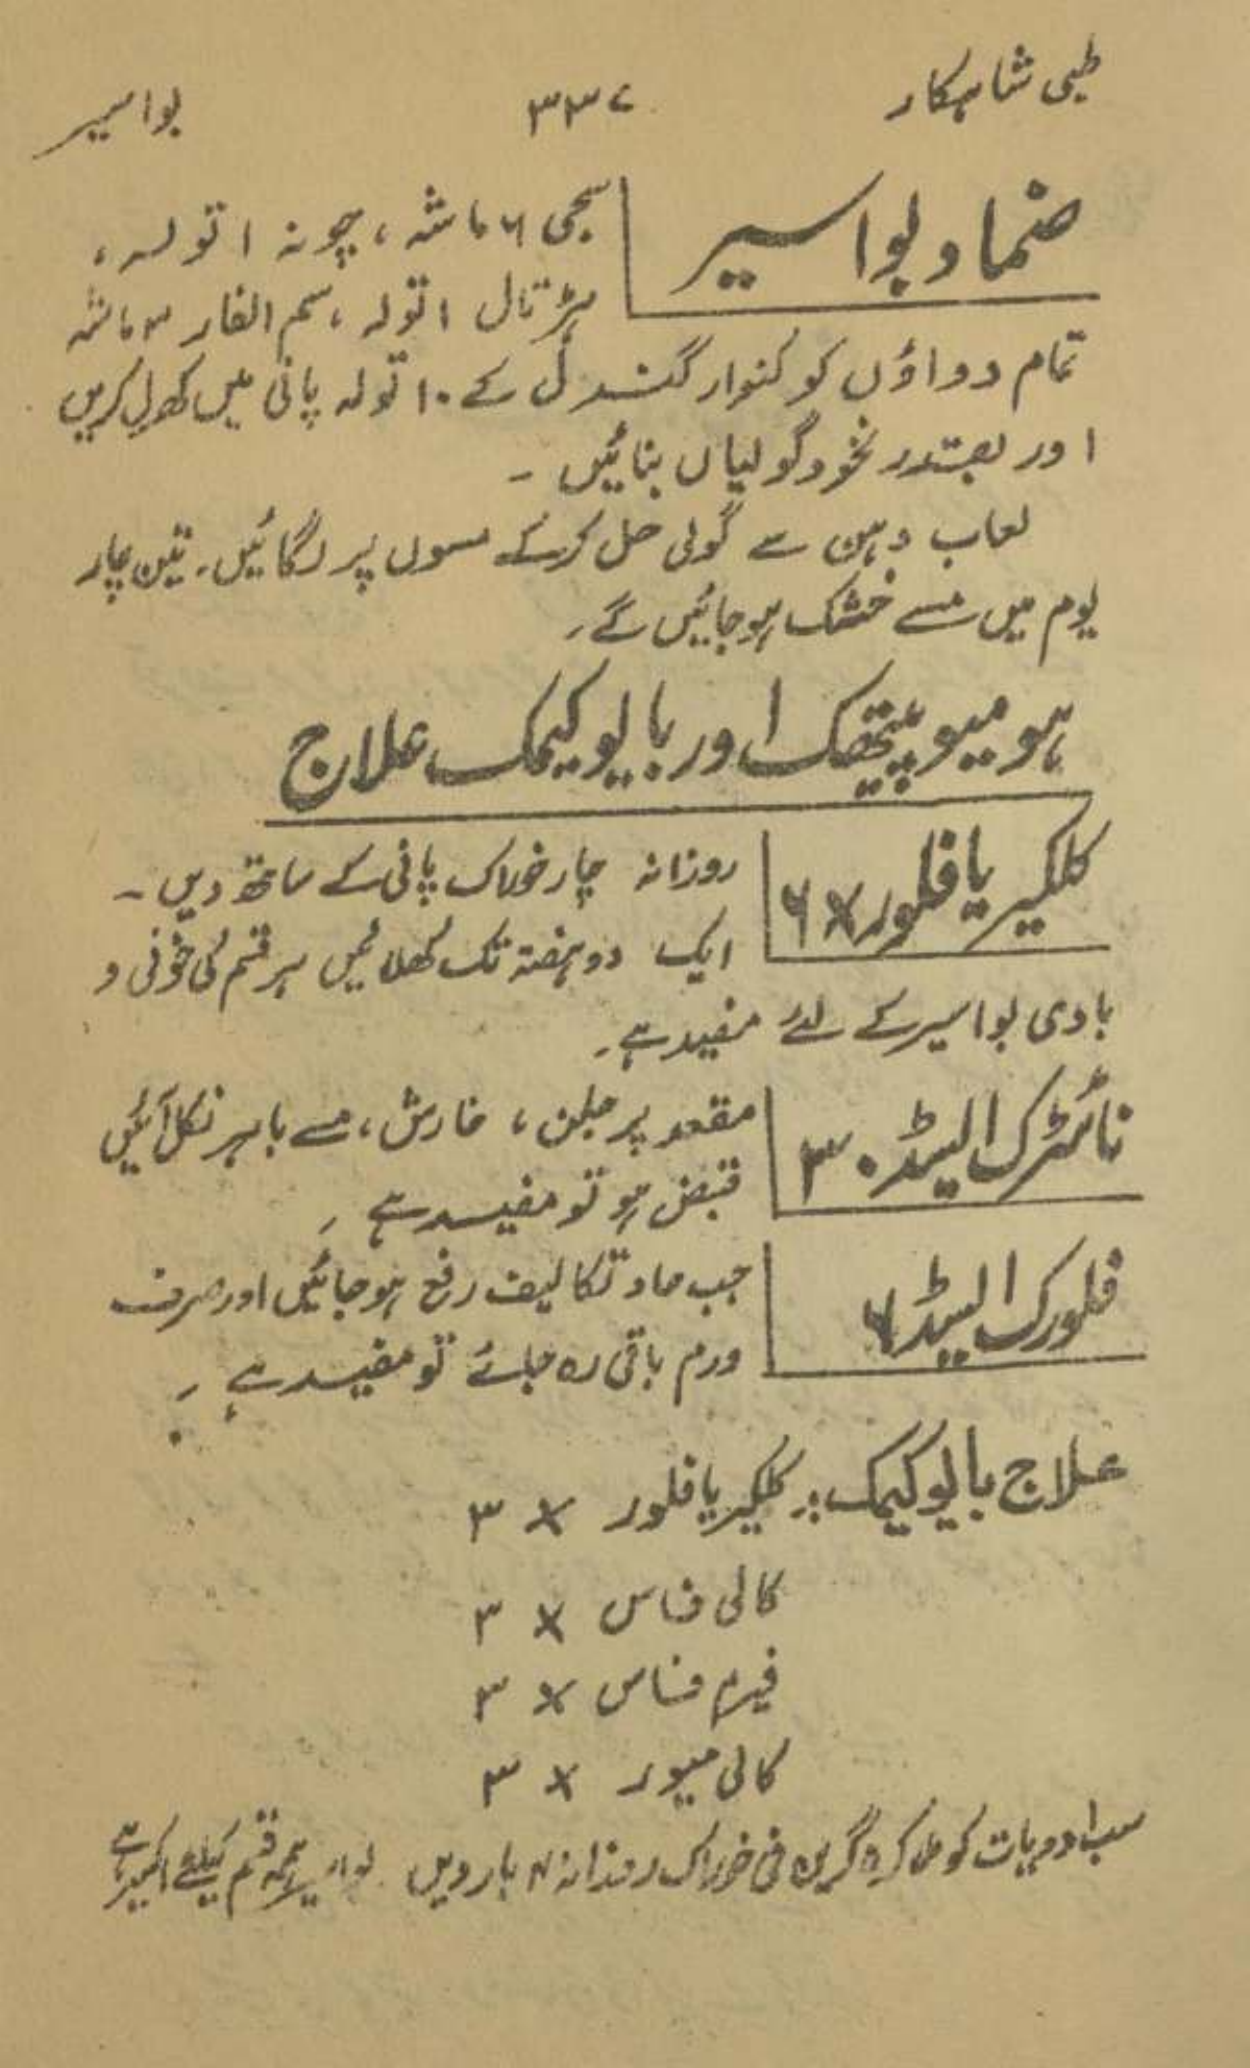 طبی شاہکار ۳۳۷ بواسیر
ضماد بواسیر
سجی ۶ ماشہ، چونہ ۱ تولہ،
ہڑتال ۱ تولہ، سم الفار ۳ ماشہ
تمام دواؤں کو کنوار گندل کے ۱۰ تولہ پانی میں کھرل کریں
اور بقدر نخود گولیاں بنائیں ۔
لعاب دہن سے گولی حل کرکے مسوں پر لگائیں۔ تین چار
یوم میں مسے خشک ہو جائیں گے۔
ہومیوپیتھک اور بایوکیمک علاج
کلکیریا فلور ۶x
روزانہ چار خوراک پانی کے ساتھ دیں ۔
ایک دو ہفتہ تک کھلائیں ہر قسم کی خونی و
بادی بواسیر کے لئے مفید ہے۔
نائٹرک ایسڈ ۳۰
مقعد پر جلن، خارش، مسے باہر نکل آئیں
قبض ہو تو مفید ہے ۔
فلورک ایسڈ ۶
جب حاد تکالیف رفع ہو جائیں اور صرف
ورم باقی رہ جائے تو مفید ہے ۔
علاج بایوکیمک :۔ کلکیریا فلور x ۳
کالی فاس x ۳
فیرم فاس x ۳
کالی میور x ۳
سب ادویات کو ملا کر ۵ گرین فی خوراک روزانہ ۴ بار دیں بواسیر ہمہ قسم کیلئے اکسیر ہے